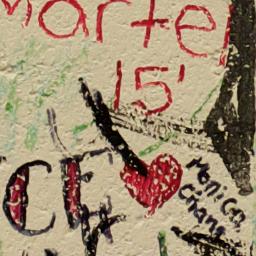 Martel
15'
CF
Monica
Chang